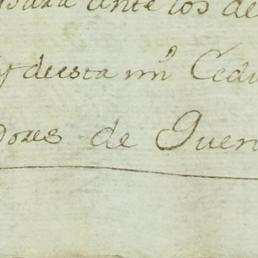 para ante los de
y de esta mi Cedu
dores de Quen